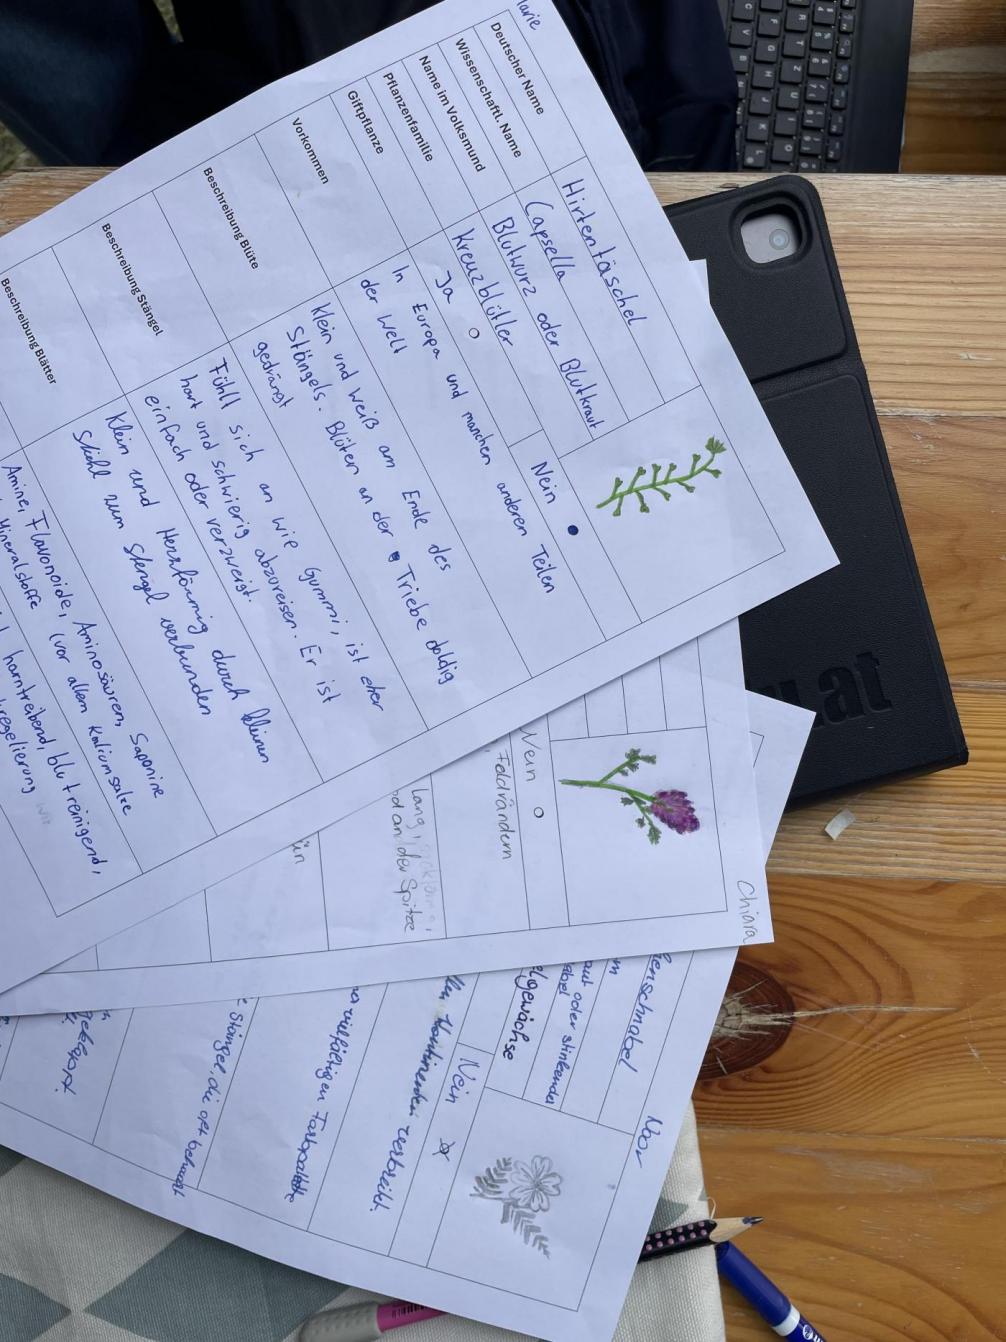 Marie
Deutscher Name
Hirtentäschel
Wissenschaftl. Name
Capsella
Name im Volksmund
Blutwurz oder Blutkraut
Pflanzenfamilie
Kreuzblütler
Giftpflanze
Ja
Nein
Vorkommen
In Europa und manchen anderen Teilen
der Welt
Beschreibung Blüte
Klein und weiß am Ende des
Stängels. Blüten an der Triebe doldig
gedrängt
Beschreibung Stängel
Fühlt sich an wie Gummi, ist eher
hart und schwierig abzureisen. Er ist
einfach oder verzweigt.
Beschreibung Blätter
Klein und Herzförmig durch
Stiehl zum Stengel verbunden
Amine, Flavonoide, Aminosäuren, Saponine
Mineralstoffe (vor allem Kaliumsalze
harntreibend, blutreinigend,
regelierung
Chiara
Nein
Feldrändern
lang,
an der Spitze
Noor
enschnabel
aut oder stinkender
gewächse
Nein
verbreitet.
vielfältigen
Stängel, die oft behaart
u.at